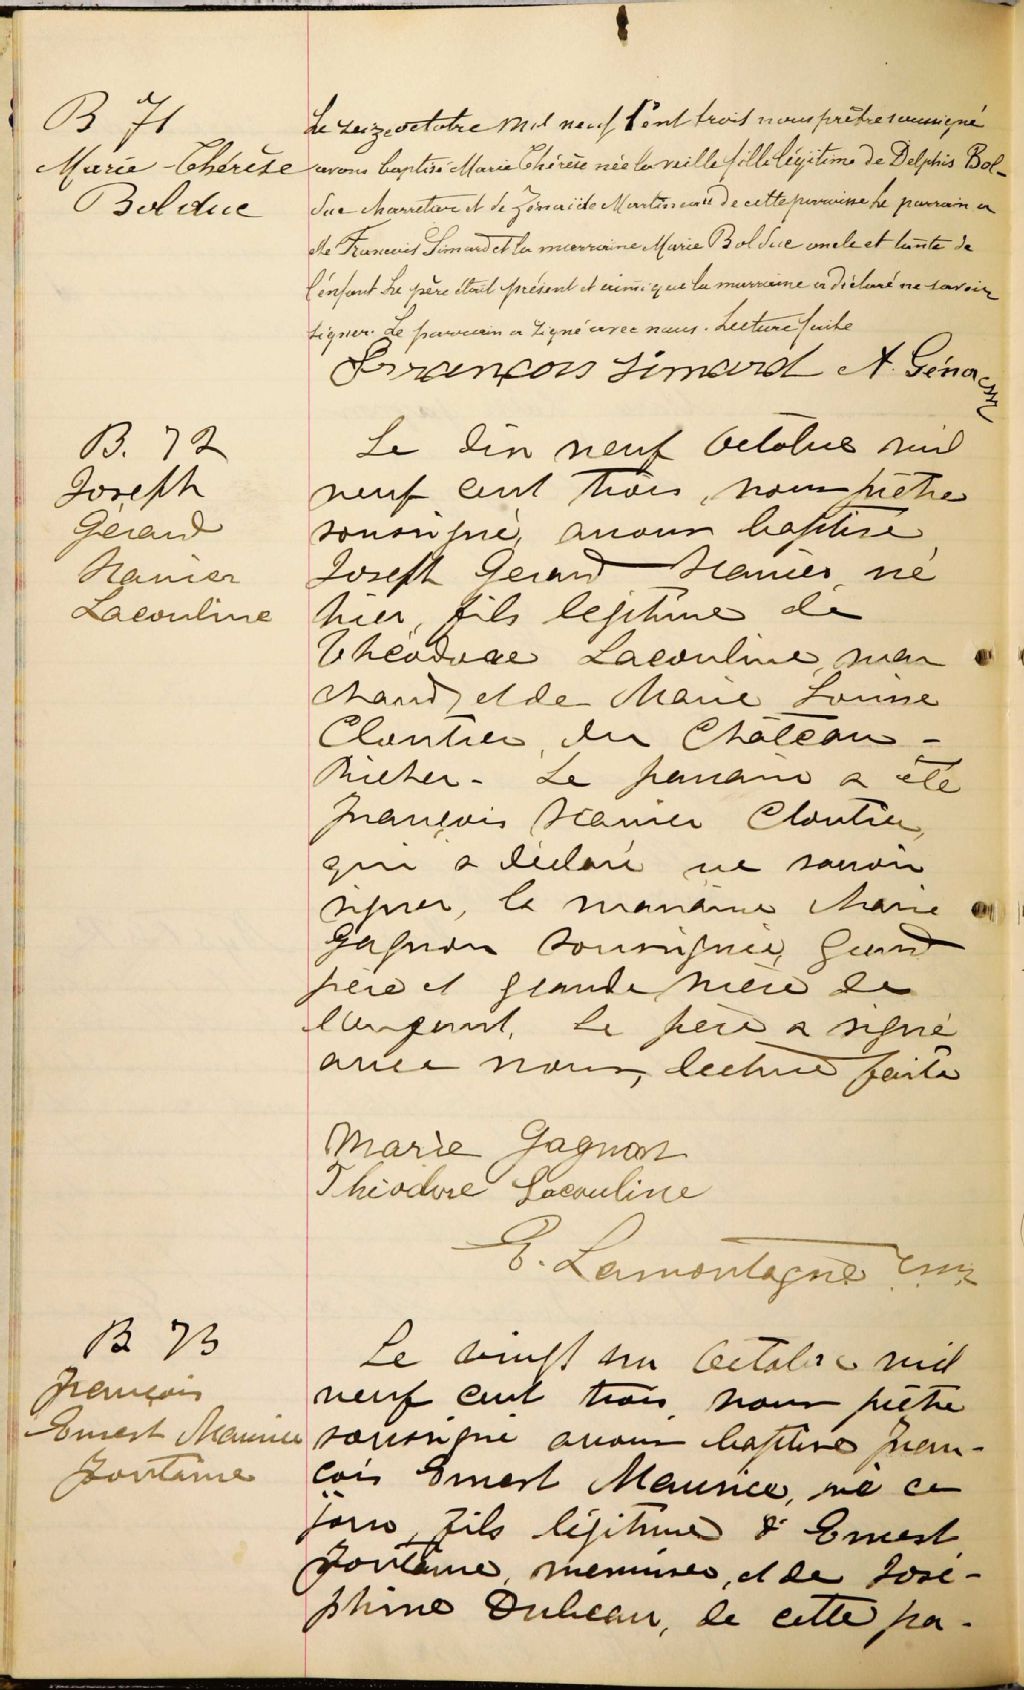 B 71
Marie-Thérèse
Bolduc
Le seize octobre mil neuf Cent trois nous prêtre soussigné
avons baptisé Marie Thérèse née la veille fille légitime de Delphis Bol-
duc charretier et de Zénaïde Martineau de cette paroisse Le parrain a
été François Simard et la marraine Marie Bolduc oncle et tante de
l'enfant Le père était présent et ainsi que la marraine a déclaré ne savoir
signer. Le parrain a signé avec nous. Lecture faite
François Simard A. Génar
B. 72
Joseph
Gérard
Xavier
Lacouline
Le dix neuf Octobre mil
neuf cent trois, nous prêtre
soussigné, avons baptisé
Joseph Gerard Xavier, né
hier, fils légitime de
Théodore Lacouline, mar
chand, et de Marie Louise
Cloutier, du Château-
Richer- Le parrain a été
François Xavier Cloutier,
qui a déclaré ne savoir
signer, la marraine Marie
Gagnon soussignée, grand
père et grande mère de
l'enfant. Le père a signé
avec nous, lecture faite
Marie Gagnon
Théodore Lacouline
E. Lamontagne
B 73
François
Ernest Maurice
Fontaine
Le vingt un Octobre mil
neuf cent trois, nous prêtre
soussigné avons baptisé Fran-
çois Ernest Maurice, né ce
jour, fils légitime d' Ernest
Fontaine, menuisier, et de José-
phine Dubeau, de cette pa-